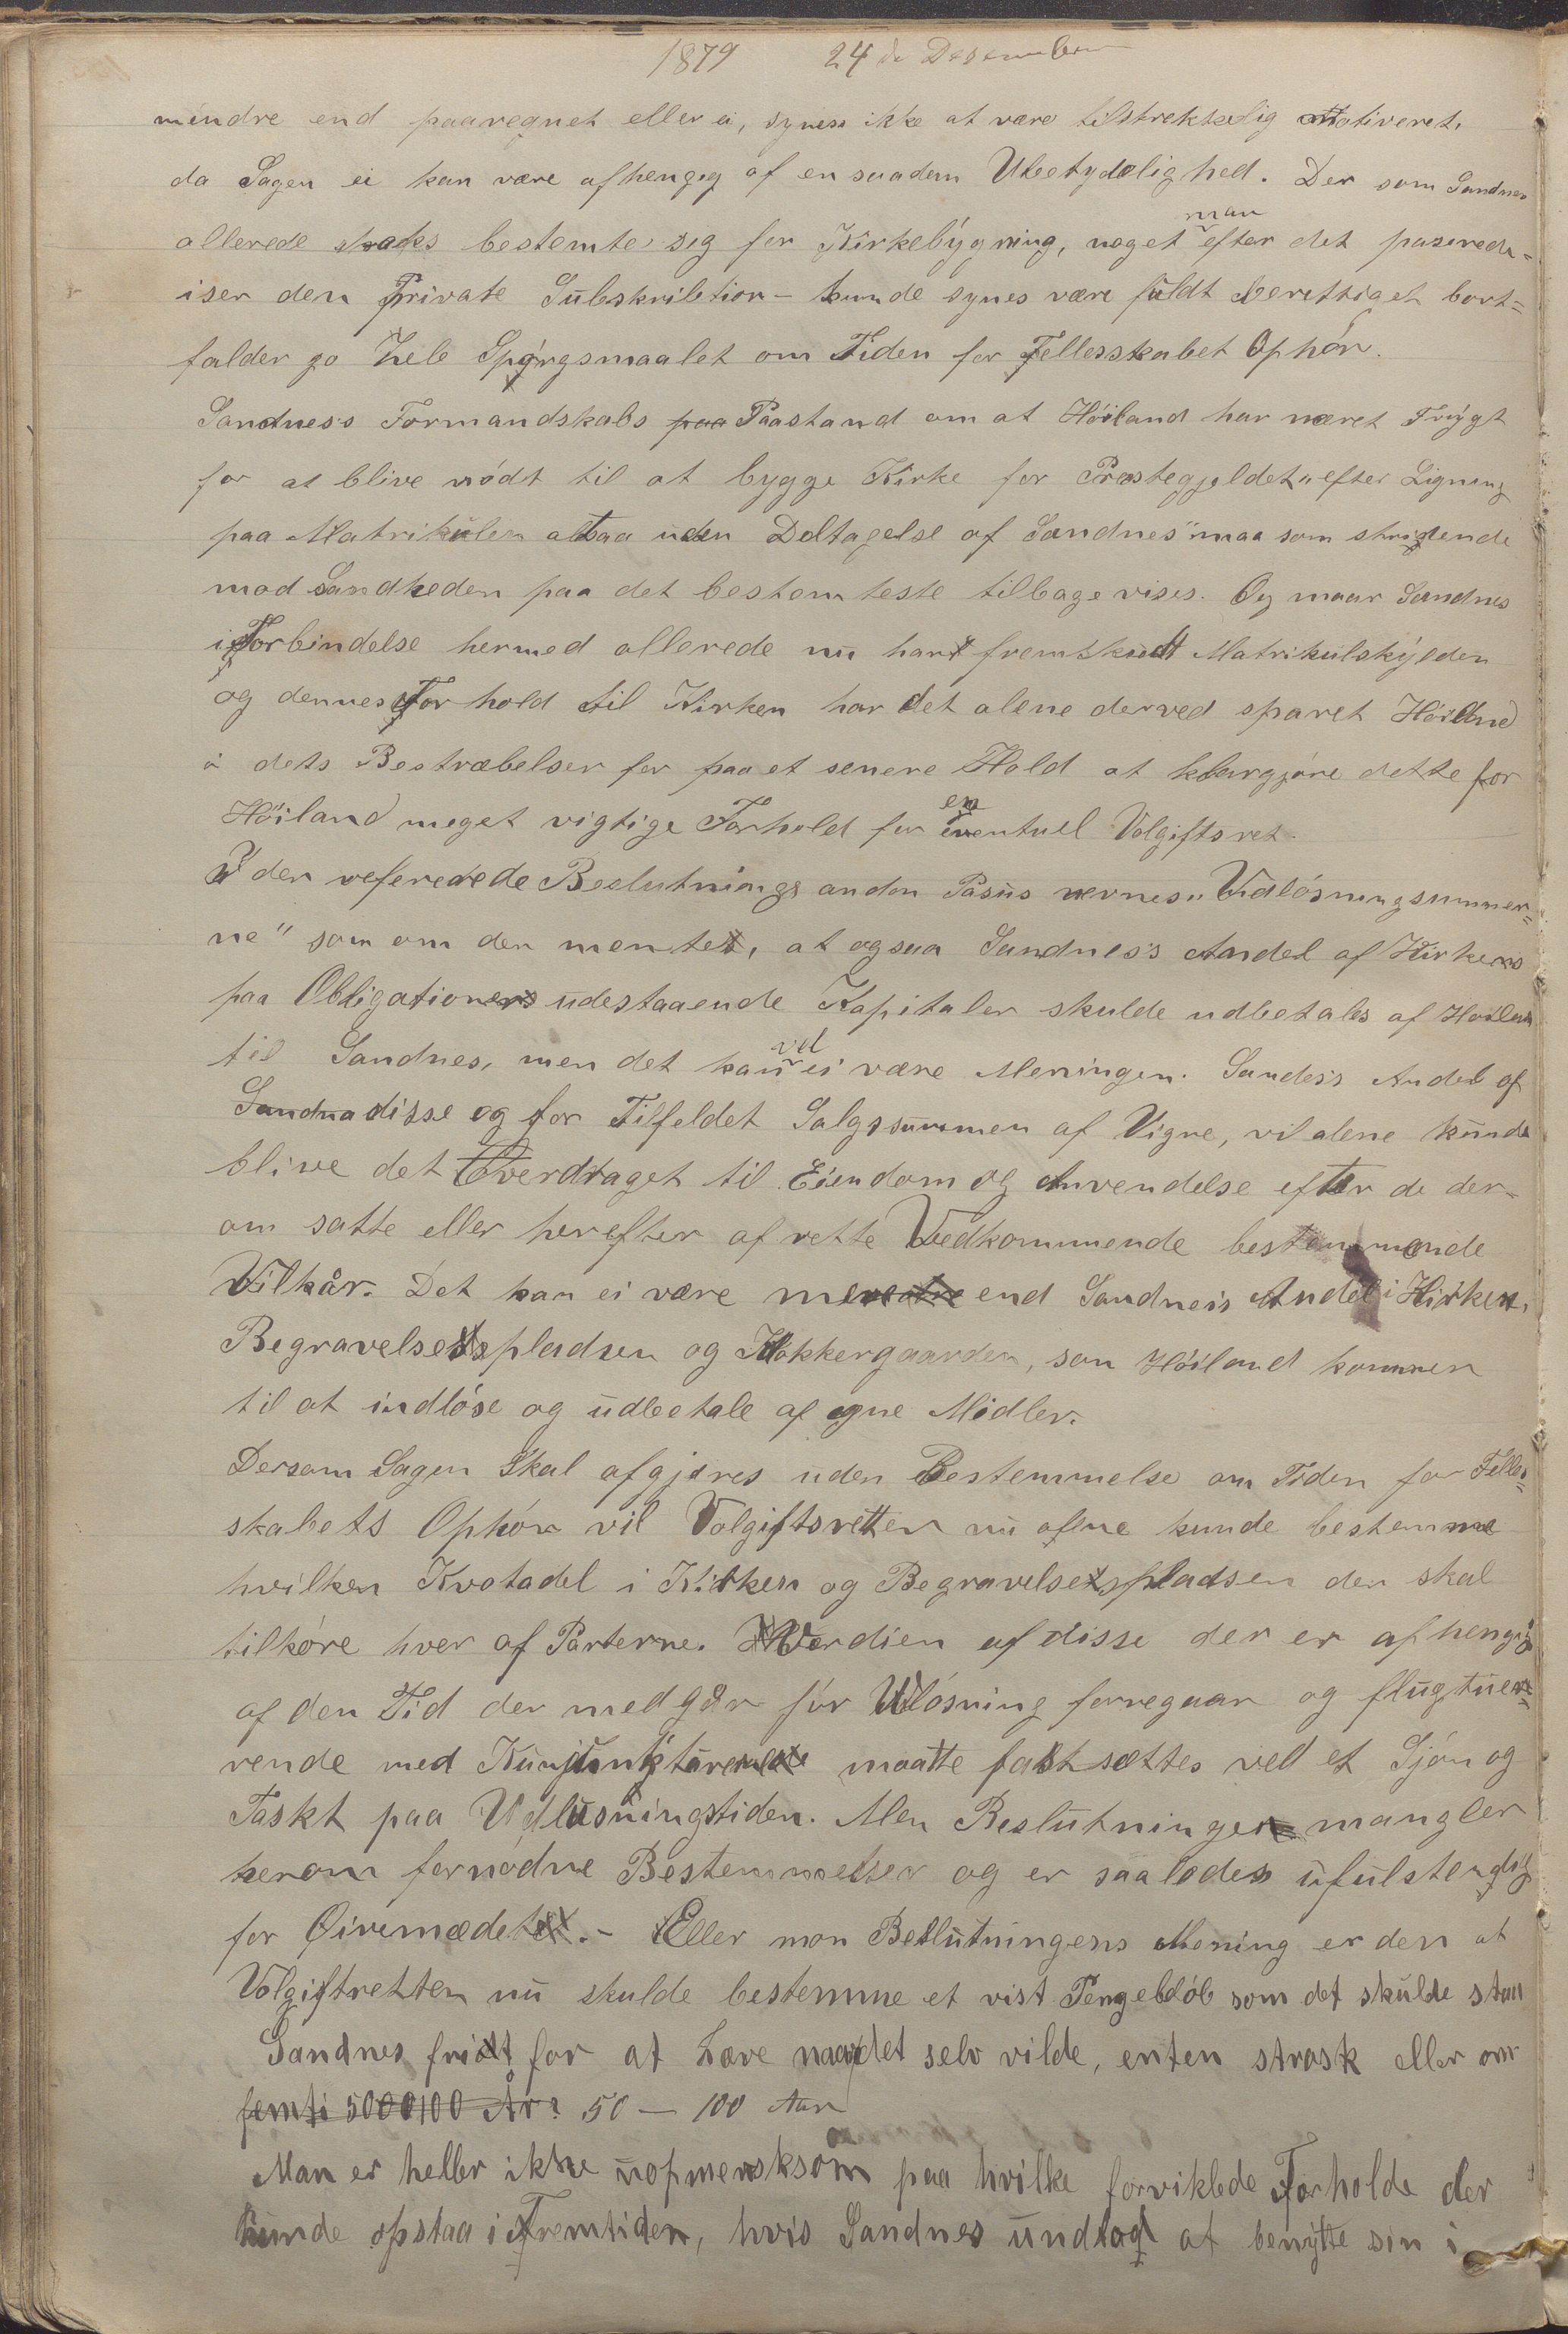 1879 24de Desember
mindre end paaregnet eller ei, synes ikke at være tilstrekkelig motiveret,
da Sagen ei kan være afhengig af en saadan Ubetydelighed. Der som Sandnes
allerede straks bestemte sig for Kirkebygning, noget man efter det paserede =
iser den Private Subskribtion – kunde synes være fuldt berettiget bort=
falder jo hele Spørgsmaalet om Tiden for Fellesskabet Ophør.
Sandnes's Formandskabs paa Paastand om at Höiland har næret Frygt
for at blive nödt til at bygge Kirke for Præstegjeldet "efter Ligning
paa Matrikulen altsaa uden Deltagelse af Sandnes" maa som stridende
mod Sandheden paa det bestemteste tilbagevises. Og naar Sandnes
i Forbindelse hermed allerede nu har fremskudt Matrikulskylden
og dennes Forhold til Kirken har det alene derved sparet Höiland
i dets Bestræbelser for paa et senere Hold at klargjøre dette for
Höiland meget vigtige Forhold for en eventuel Volgiftsret.
I den refererede Beslutnings anden Pasus nevnes "Udlösningsummer=
ne" som om der mentes, at ogsaa Sandnes's Andel af Kirkens
paa Obligationer udestaaende Kapitaler skulde udbetales af Höiland
til Sandnes, men det kan vel ei være Meningen. Sandes's Andel af
Sandna disse og for Tilfeldet Salgssummen af Vigne, vil alene kunde
blive det Overdraget til Eiendom og Anvendelse efter de der-
om satte eller herefter af rette Vedkommende bestemmende
Vilkår. Det kan ei være mere end Sandnes's Andel i Kirken,
Begravelsespladsen og Klokkergaarden, som Höiland kommer
til at indlöse og udbetale af egne Midler.
Dersom Sagen Skal afgjøres uden Bestemmelse om Tiden for Felles=
skabets Ophör vil Volgiftsretten nu alene kunde bestemme
hvilken Kvotadel i Kirken og Begravelsespladsen der skal
tilhöre hver af Parterne. Værdien af disse der er afhengig
af den Tid der medgår för Udlösning foregaar og flugtue=
rende med Kunjunkturene maatte fastsættes ved et Sjön og
Taskt paa Udløsningstiden. Men Beslutningen mangler
herom fornødne Bestemmelser og er saaledes ufulstendig
for Øiemedet. – Eller mon Beslutningens Mening er den at
Volgiftretten nu skulde bestemme et vist Pengebelöb som det skulde staa
Sandnes frit for at Hæve naar det selv vilde, enten strask eller om
femti 50 100 År? 50 — 100 Aar
Man er heller ikke uopmerksom paa hvilke forviklede Forholde der
kunde opstaa i Fremtiden, hvis Sandnes undlod at benytte sin i